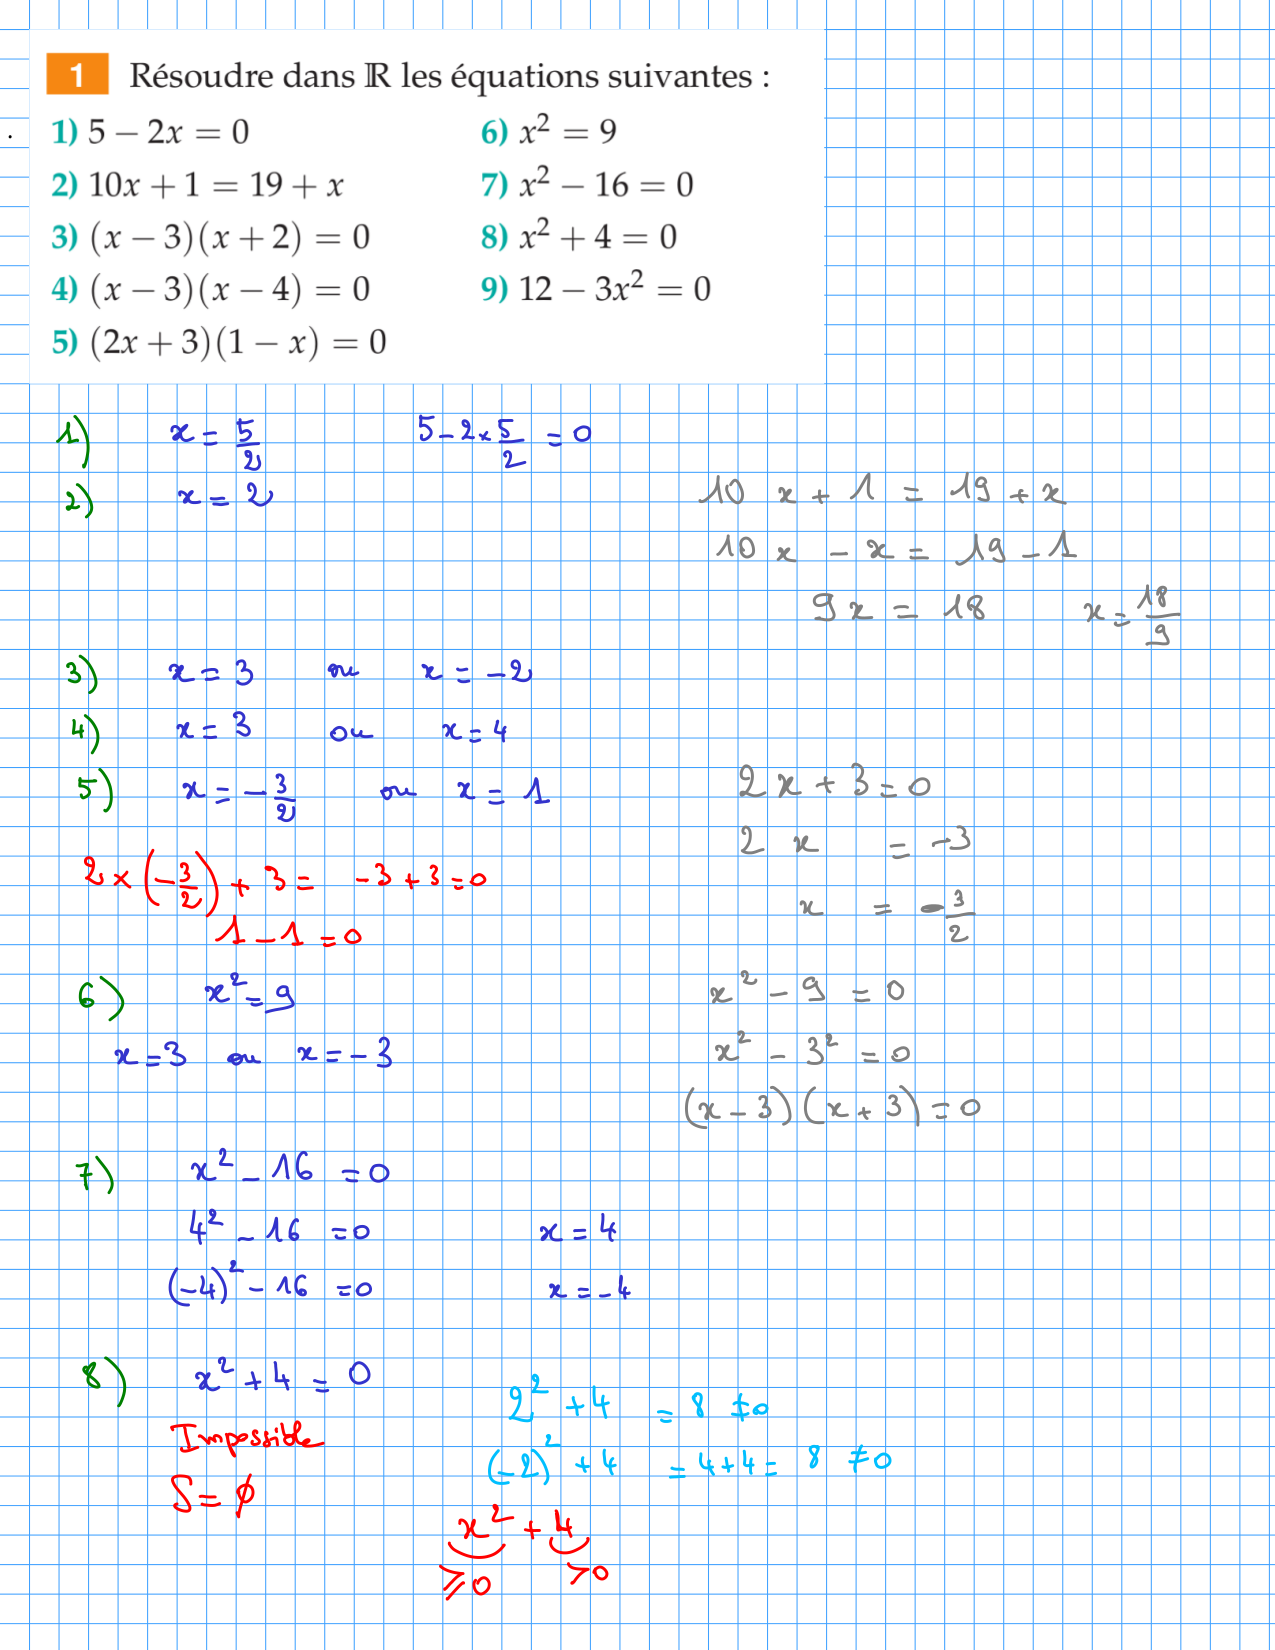 1 Résoudre dans ℝ les équations suivantes :
1) 5 − 2x = 0
2) 10x + 1 = 19 + x
3) (x − 3)(x + 2) = 0
4) (x − 3)(x − 4) = 0
5) (2x + 3)(1 − x) = 0
6) x² = 9
7) x² − 16 = 0
8) x² + 4 = 0
9) 12 − 3x² = 0
1) x = 5/2 5 − 2 × 5/2 = 0
2) x = 2
10 x + 1 = 19 + x
10 x − x = 19 − 1
9x = 18 x = 18/9
3) x = 3 ou x = −2
4) x = 3 ou x = 4
5) x = −3/2 ou x = 1
2 × (−3/2) + 3 = −3 + 3 = 0
1 − 1 = 0
2x + 3 = 0
2 x = −3
x = −3/2
6) x² = 9
x = 3 ou x = −3
x² − 9 = 0
x² − 3² = 0
(x − 3)(x + 3) = 0
7) x² − 16 = 0
4² − 16 = 0 x = 4
(−4)² − 16 = 0 x = −4
8) x² + 4 = 0
Impossible
S = ∅
2² + 4 = 8 ≠ 0
(−2)² + 4 = 4 + 4 = 8 ≠ 0
x² + 4
⩾ 0 > 0